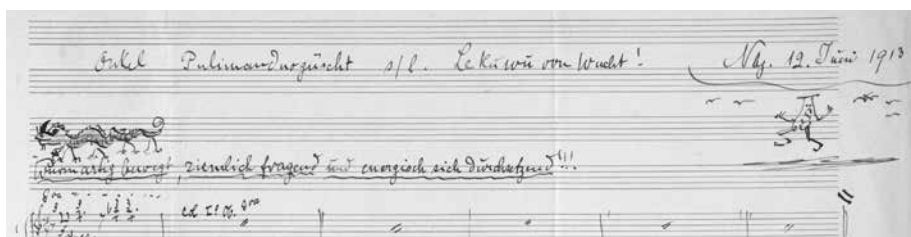 Onkel Pulimandurgüscht s/l. Lekuwü von Wucht! Nbg. 12. Juni 1913
Sturmartig bewegt, ziemlich fragend und energisch sich durchsetzend!!!
8va
col I° Ob. 8va